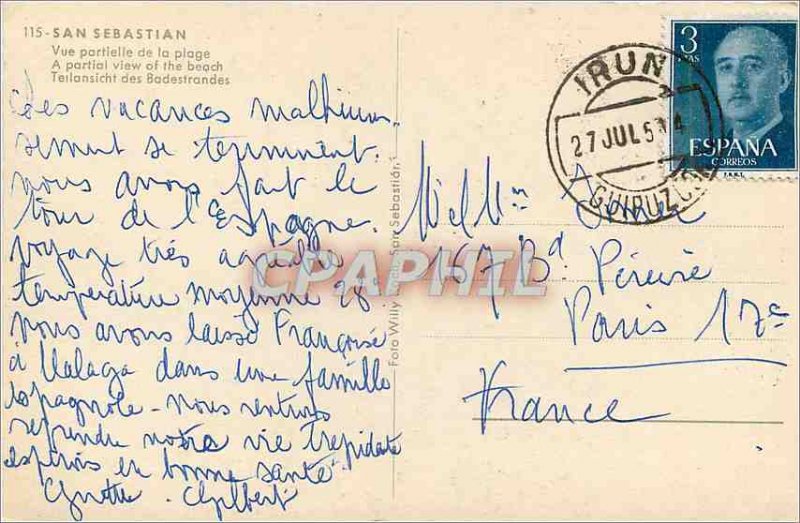 115-SAN SEBASTIAN
Vue partielle de la plage
A partial view of the beach
Teilansicht des Badestrandes
Les vacances malheureu-
sement se terminent.
nous avons fait le
tour de l'Espagne.
voyage très agréable
température moyenne 28°
nous avons laissé Françoise
à Malaga dans une famille
espagnole - nous rentrons
reprendre notre vie trépidante
espérons en bonne santé
Gilbert
Foto Willy San Sebastián
167 Bd Péreire
Paris 17e
France
IRUN
27 JUL 5
GUIPUZCOA
3
PTAS
ESPAÑA
CORREOS
CPAPHIL